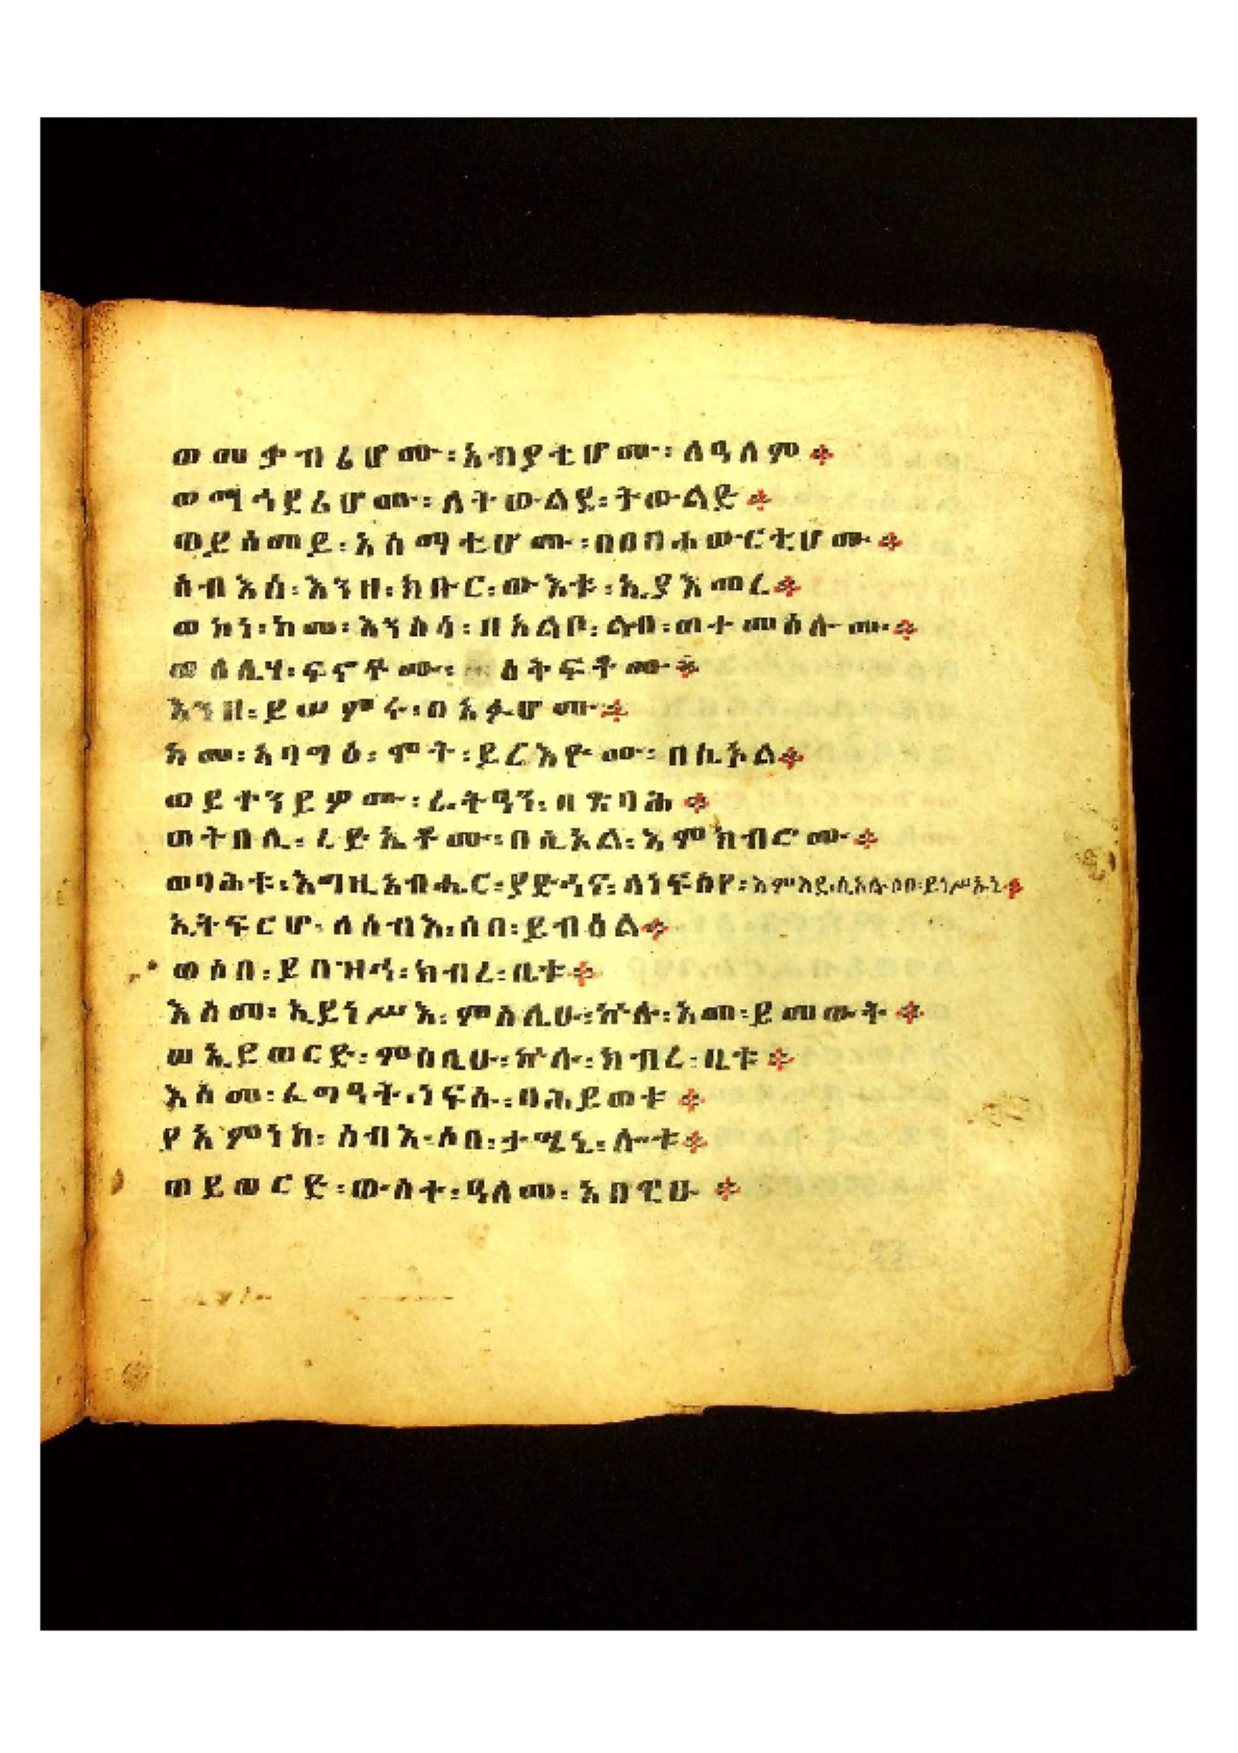 ወመቃብሬሆሙ፡አብያቲሆሙ፡ለዓለም።
ወማኅደሬሆሙ፡ለትውልደ፡ትውልድ።
ወይሰመይ፡አስማቲሆሙ፡በበባሐውርቲሆሙ።
ሰብእሰ፡እንዘ፡ክቡር፡ውእቱ፡ኢያእመረ።
ወኮነ፡ከመ፡እንስሳ፡ዘአልቦ፡ልበ፡ወተመሰሎሙ።
ፍኖቶሙ፡ዕቅፍቶሙ።
እንዘ፡ይሠምሩ፡በአፉሆሙ።
ከመ፡አባግዕ፡ሞት፡ይረእዮሙ፡በሲኦል።
ወይቀንይዎሙ፡ራትዓን፡በጽባሕ።
ወትበሊ፡ረድኤቶሙ፡በሲኦል፡እምክብሮሙ።
ወባሕቱ፡እግዚአብሔር፡ያድኅና፡ለነፍስየ፡እምእደ፡ሲኦል፡ሶበ፡ይነሥኡኒ።
ኢትፍርሆ፡ለሰብእ፡ሶበ፡ይብዕል።
ወሶበ፡ይበዝኅ፡ክብረ፡ቤቱ።
እስመ፡ኢይነሥእ፡ምስሌሁ፡ኵሎ፡አመ፡ይመውት።
ወኢይወርድ፡ምስሌሁ፡ኵሉ፡ክብረ፡ቤቱ።
እስመ፡ፈግዓት፡ነፍሱ፡በሕይወቱ።
የአምነከ፡ሰብእ፡ሶበ፡ታሤኒ፡ሎቱ።
ወይወርድ፡ውስተ፡ዓለመ፡አበዊሁ።